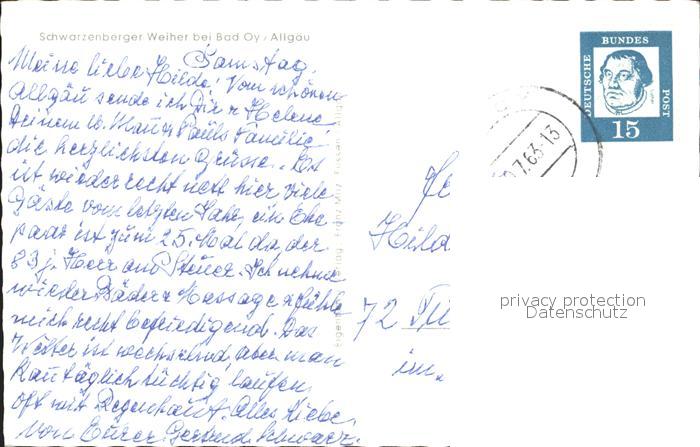 Schwarzenberger Weiher bei Bad Oy / Allgäu
Samstag,
Meine liebe Hilde! Vom schönen
Allgäu sende ich Dir u Helene
Deinem lb. Mann u Pauls Familie
die herzlichsten Grüsse. Est
ist wieder recht nett hier viele
Gäste vom letzten Jahr, ein Ehe
paar ist zum 25. Mal da, der
83 j. Herr am Steuer. Ich nehme
wieder Bäder u Massage u fühle
mich recht befriedigend. Das
Wetter ist wechselnd, aber man
kann täglich tüchtig laufen,
oft mit Regenhaut. Alles Liebe,
von Eurer Gertrud Schwarz.
DEUTSCHE BUNDES POST
15
7.63-13
Hild
72
im
privacy protection
Datenschutz